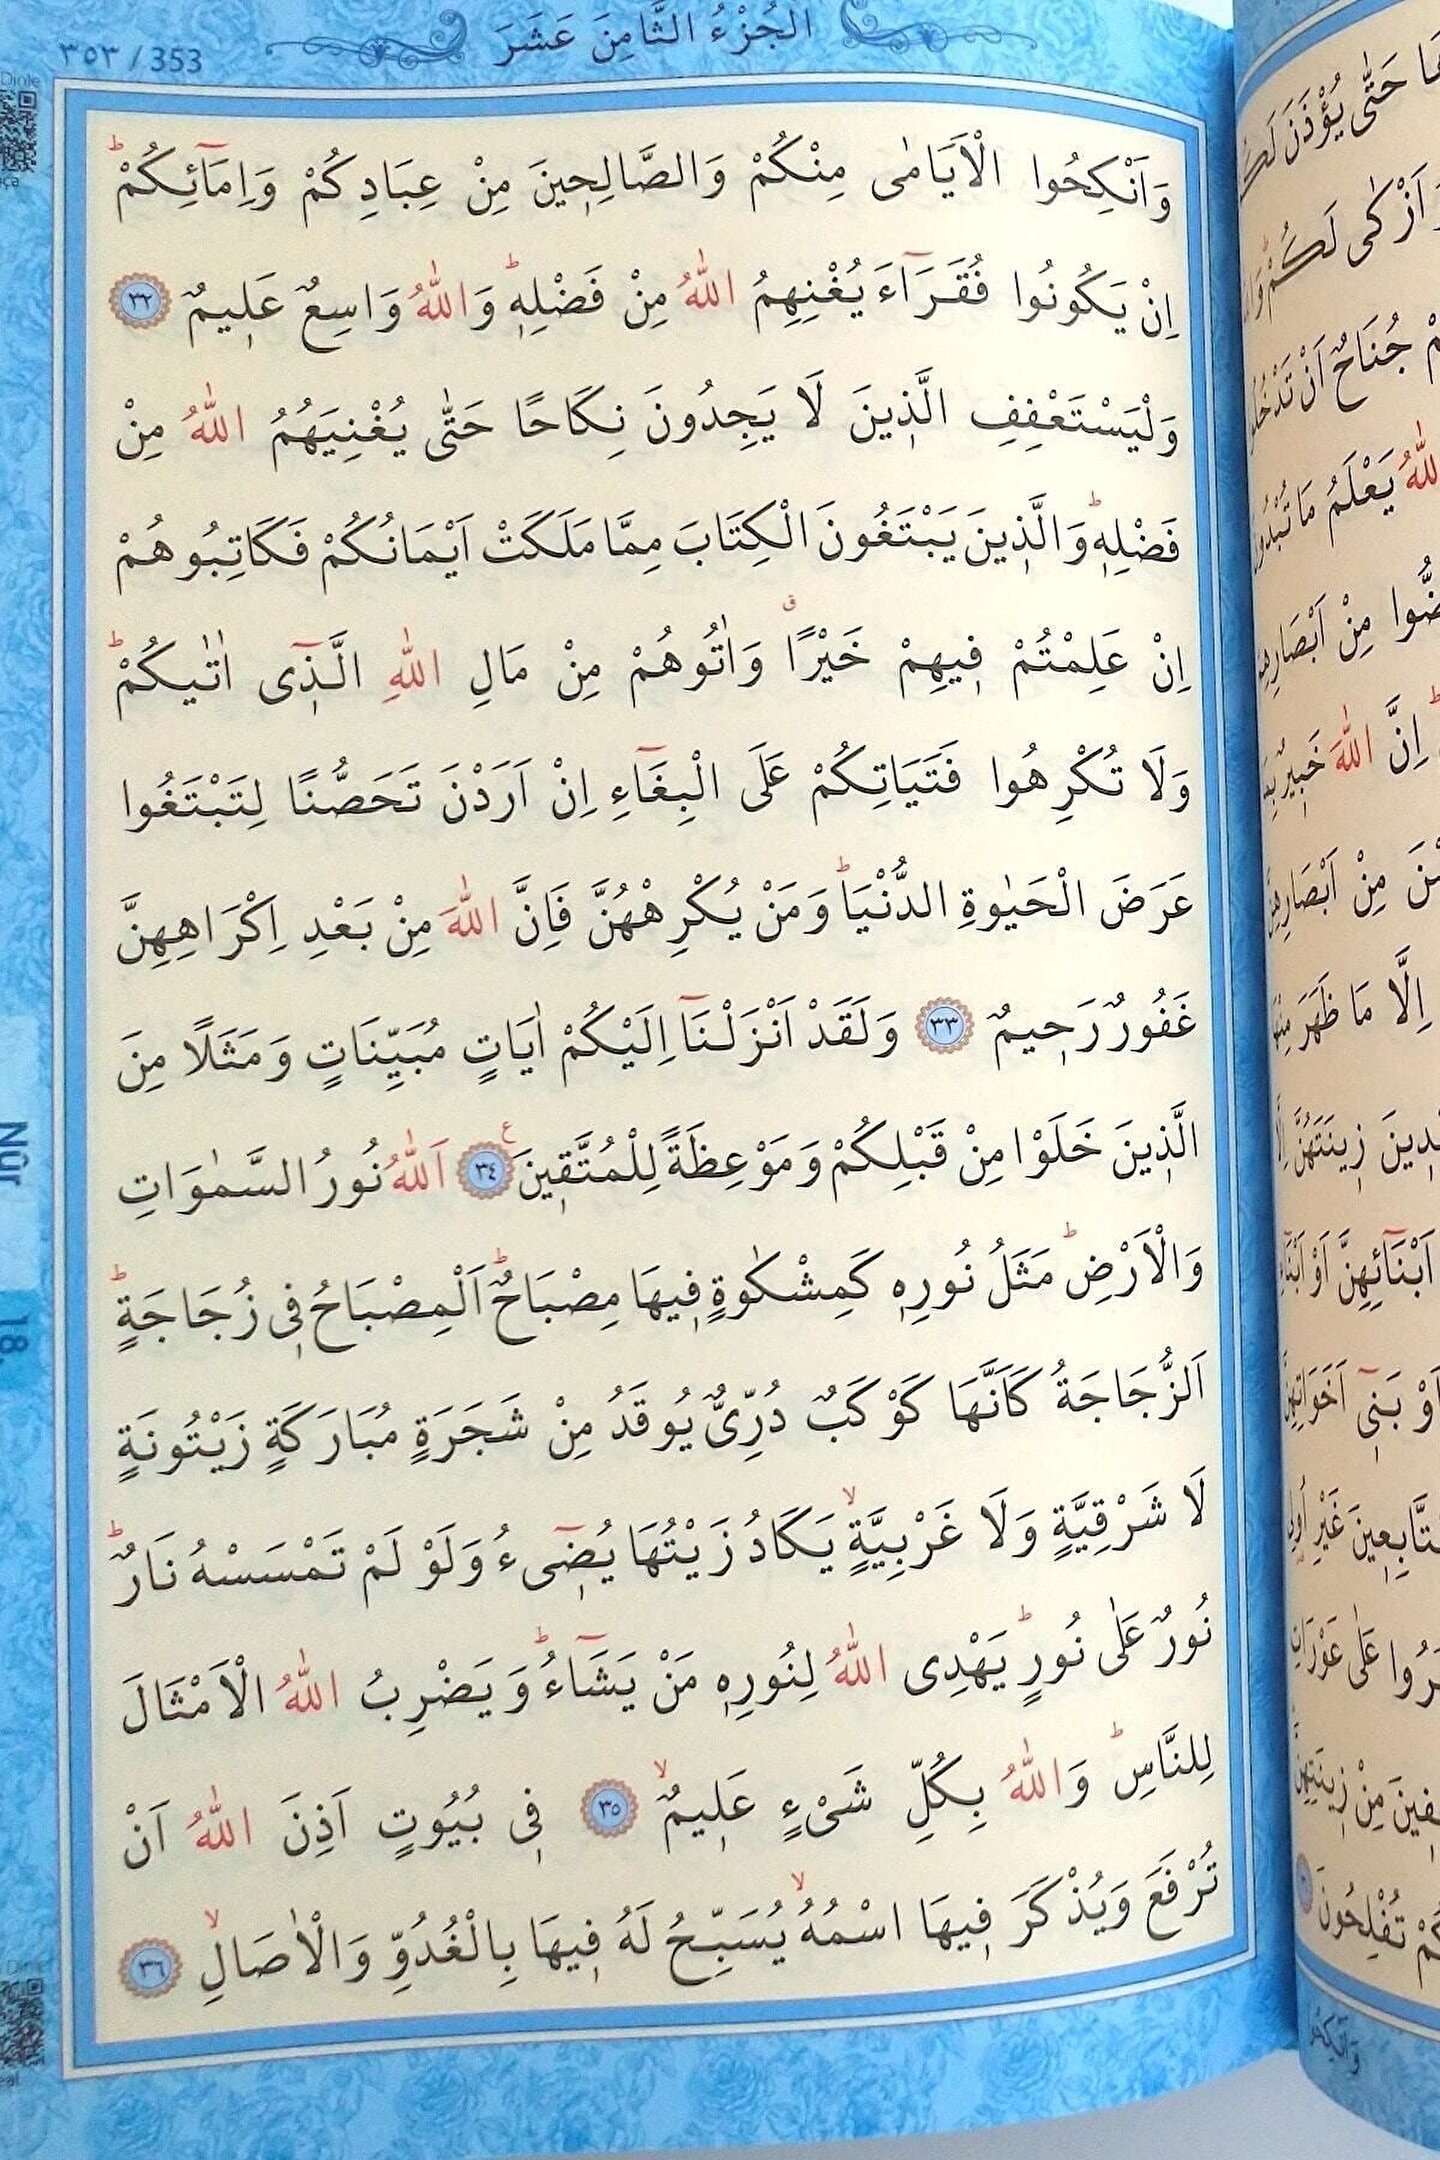 الجُزْءُ الثَّامِنَ عَشَرَ
٣٥٣ / 353
وَاَنْكِحُوا الْاَيَامٰى مِنْكُمْ وَالصَّالِحٖينَ مِنْ عِبَادِكُمْ وَاِمَٓائِكُمْؕ
اِنْ يَكُونُوا فُقَـرَٓاءَ يُغْنِهِمُ اللّٰهُ مِنْ فَضْلِهٖؕ وَاللّٰهُ وَاسِعٌ عَلٖيمٌ ﴿٣٢﴾
وَلْيَسْتَعْفِفِ الَّذٖينَ لَا يَجِدُونَ نِكَاحًا حَتّٰى يُغْنِيَهُمُ اللّٰهُ مِنْ
فَضْلِهٖؕ وَالَّذٖينَ يَبْتَغُونَ الْكِتَابَ مِمَّا مَلَكَتْ اَيْمَانُكُمْ فَكَاتِبُوهُمْ
اِنْ عَلِمْتُمْ فٖيهِمْ خَيْرًاۗ وَاٰتُوهُمْ مِنْ مَالِ اللّٰهِ الَّـذٖٓى اٰتٰيكُمْؕ
وَلَا تُكْرِهُوا فَتَيَاتِكُمْ عَلَى الْبِغَٓاءِ اِنْ اَرَدْنَ تَحَصُّنًا لِتَبْتَغُوا
عَرَضَ الْحَيٰوةِ الدُّنْيَاؕ وَمَنْ يُكْرِهْهُنَّ فَاِنَّ اللّٰهَ مِنْ بَعْدِ اِكْرَاهِهِنَّ
غَفُورٌ رَحٖيمٌ ﴿٣٣﴾ وَلَقَدْ اَنْزَلْـنَٓا اِلَيْكُمْ اٰيَاتٍ مُبَيِّنَاتٍ وَمَثَلًا مِنَ
الَّذٖينَ خَلَوْا مِنْ قَبْلِكُمْ وَمَوْعِظَةً لِلْمُتَّقٖينَ ﴿٣٤﴾ ع اَللّٰهُ نُورُ السَّمٰوَاتِ
وَالْاَرْضِؕ مَثَلُ نُورِهٖ كَمِشْكٰوةٍ فٖيهَا مِصْبَاحٌؕ اَلْمِصْبَاحُ فٖى زُجَاجَةٍؕ
اَلزُّجَاجَةُ كَاَنَّهَا كَوْكَبٌ دُرِّىٌّ يُوقَدُ مِنْ شَجَرَةٍ مُبَارَكَةٍ زَيْتُونَةٍ
لَا شَرْقِيَّةٍ وَلَا غَرْبِيَّةٍۙ يَكَادُ زَيْتُهَا يُضٖٓىءُ وَلَوْ لَمْ تَمْسَسْهُ نَارٌؕ
نُورٌ عَلٰى نُورٍؕ يَهْدِى اللّٰهُ لِنُورِهٖ مَنْ يَشَٓاءُؕ وَيَضْرِبُ اللّٰهُ الْاَمْثَالَ
لِلنَّاسِؕ وَاللّٰهُ بِكُلِّ شَىْءٍ عَلٖيمٌۙ ﴿٣٥﴾ فٖى بُيُوتٍ اَذِنَ اللّٰهُ اَنْ
تُرْفَعَ وَيُذْكَرَ فٖيهَا اسْمُهُۙ يُسَبِّحُ لَهُ فٖيهَا بِالْغُدُوِّ وَالْاٰصَالِۙ ﴿٣٦﴾
Nûr
18.
Dinle
حَتّٰى يُؤْذَنَ
اَزْكٰى لَكُمْ
جُنَاحٌ اَنْ
يَعْلَمُ مَا
مِنْ
اِنَّ اللّٰهَ خَبٖيرٌ
مِنْ
اِلَّا مَا ظَهَرَ
زٖينَتَهُنَّ
اَبْنَٓائِهِنَّ اَوْ
اَوْ بَنٖٓى
غَيْرِ
عَلٰى
مِنْ
تُفْلِحُونَ
وَاَنْكِحُوا